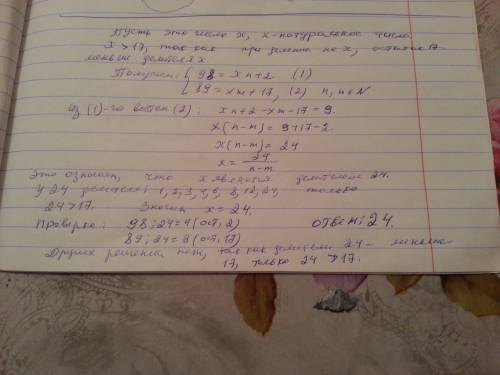 Пусть это число x, x-натуральное число
x > 17, так как при делении на x, остаток 17
меньше делителя x.
Получим: { 98 = xn+2 (1)
89 = xm+17, (2) n, m ∈ N
Из (1)-го вычтем (2): xn+2-xm-17=9.
x(n-m) = 9+17-2.
x(n-m) = 24
x = 24/(n-m)
Это означает, что x является делителем 24.
У 24 делители: 1, 2, 3, 4, 6, 8, 12, 24, только
24 > 17. Значит x = 24.
Проверка: 98:24=4 (ост. 2) Ответ: 24.
89:24=3 (ост. 17)
Других решений нет, так как делители 24 - меньше
17, только 24 > 17.